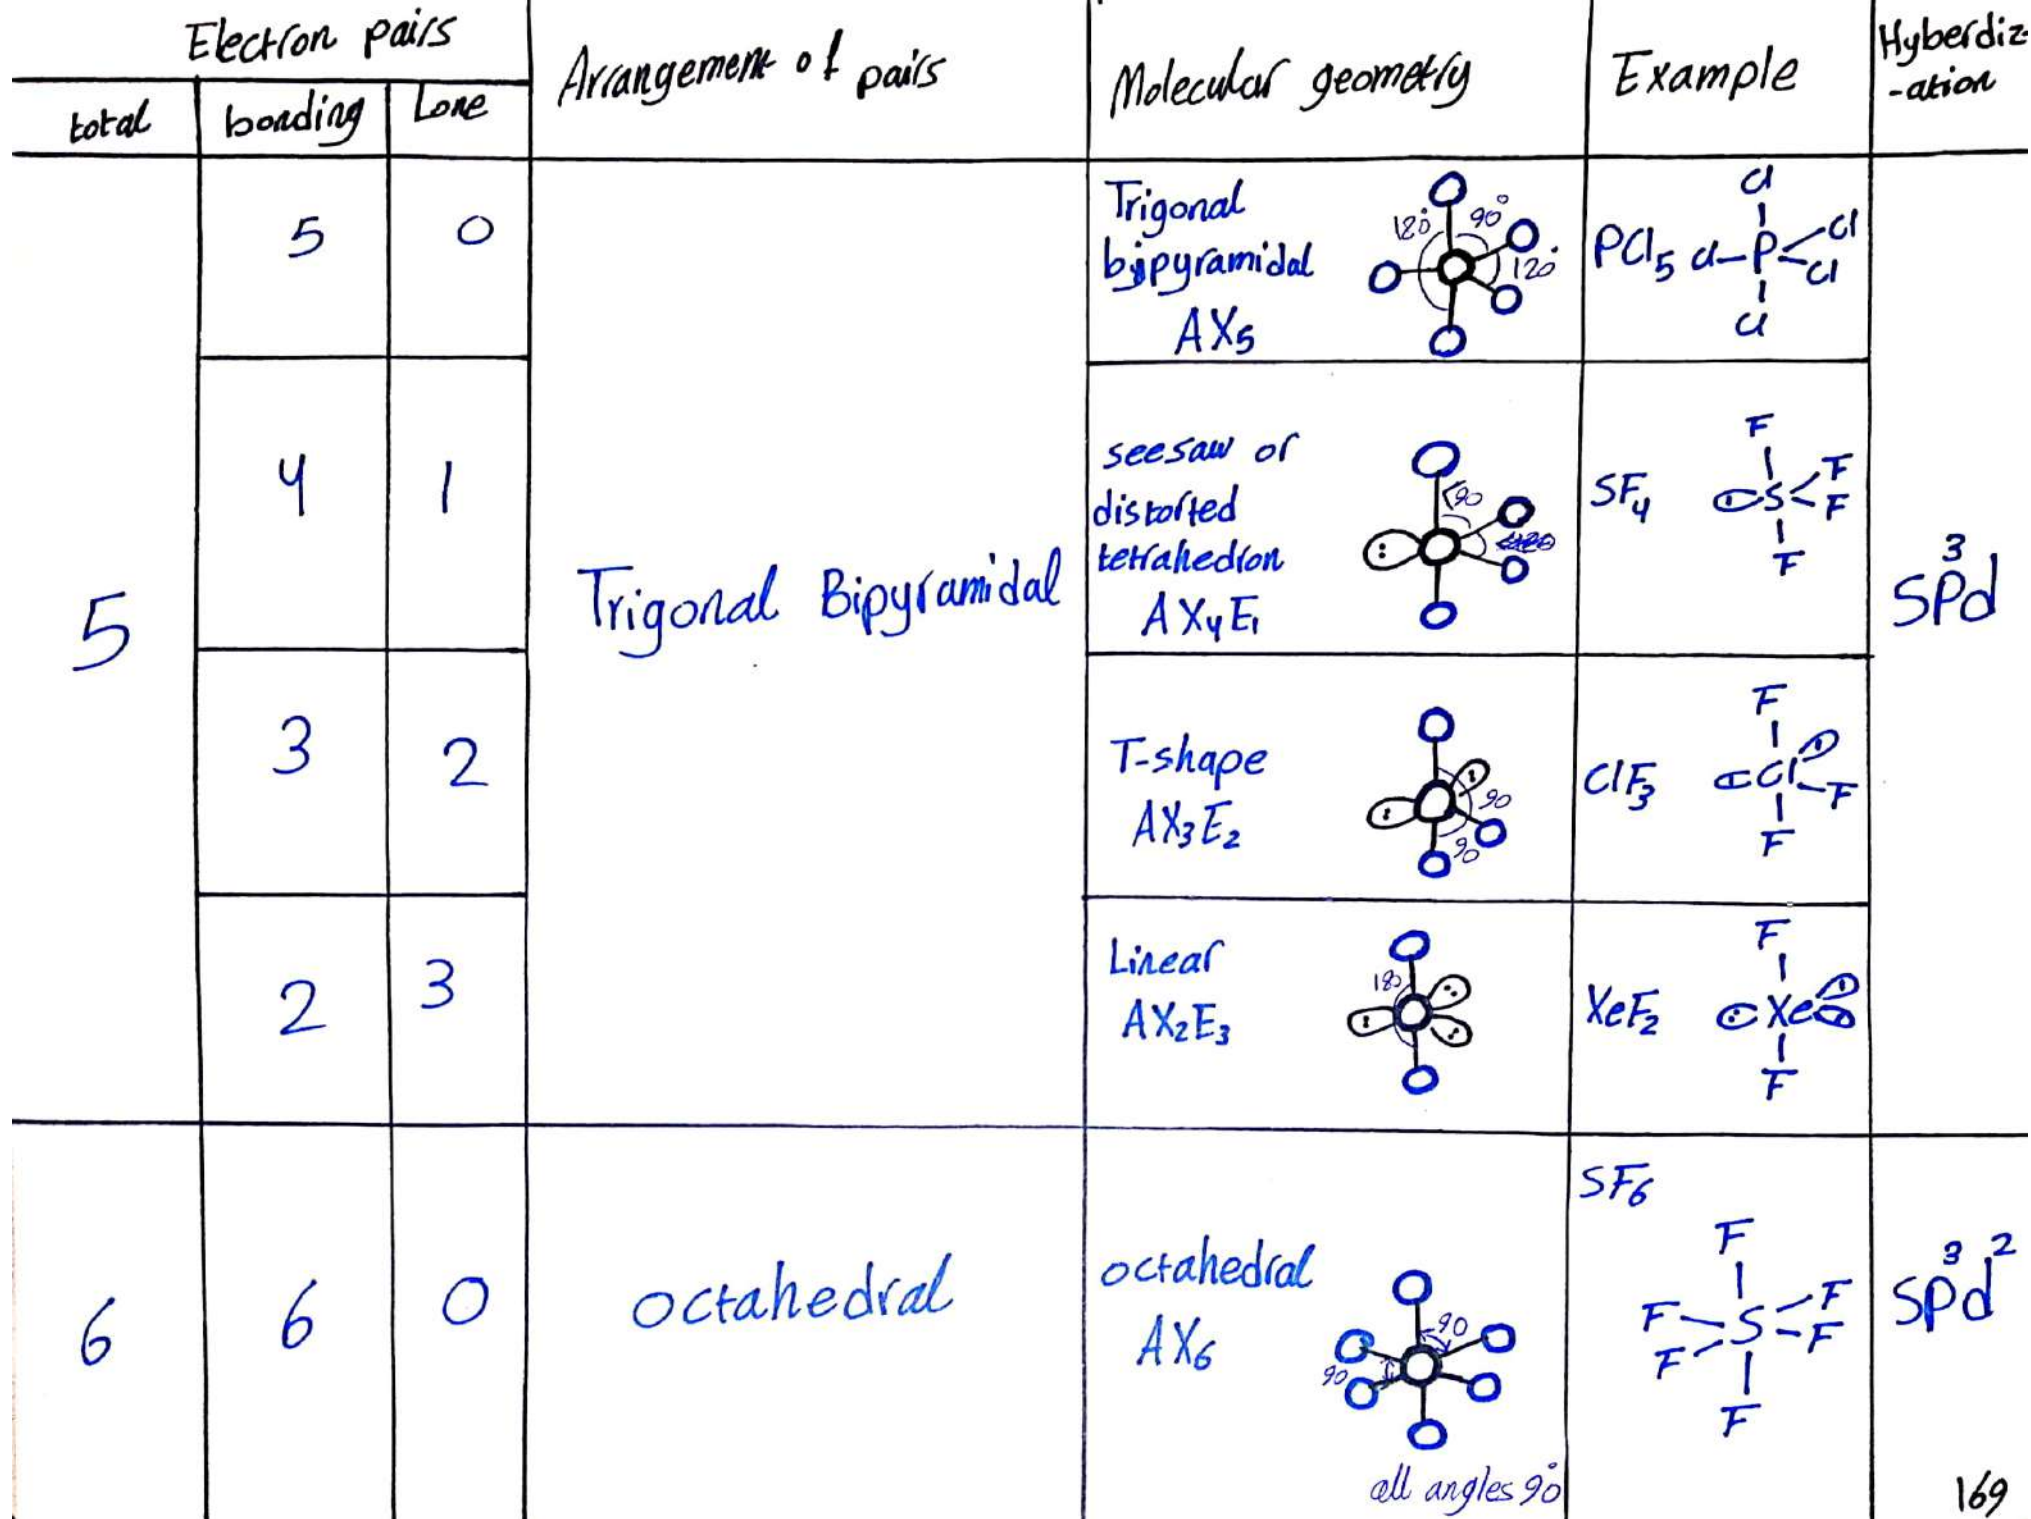 Electron pairs
total
bonding
Lone
Arrangement of pairs
Molecular geometry
Example
Hyberdiz-
-ation
5
5
0
Trigonal Bipyramidal
Trigonal
bipyramidal
AX5
120°
90°
120°
PCl5
Cl
Cl-P
Cl
Cl
Cl
SP3d
4
1
seesaw or
distorted
tetrahedron
AX4E1
<90
SF4
F
S
F
F
F
3
2
T-shape
AX3E2
90
90
ClF3
F
Cl
F
F
2
3
Linear
AX2E3
180
XeF2
F
Xe
F
6
6
0
octahedral
octahedral
AX6
90
90
all angles 90°
SF6
F
F
S
F
F
F
F
SP3d2
169